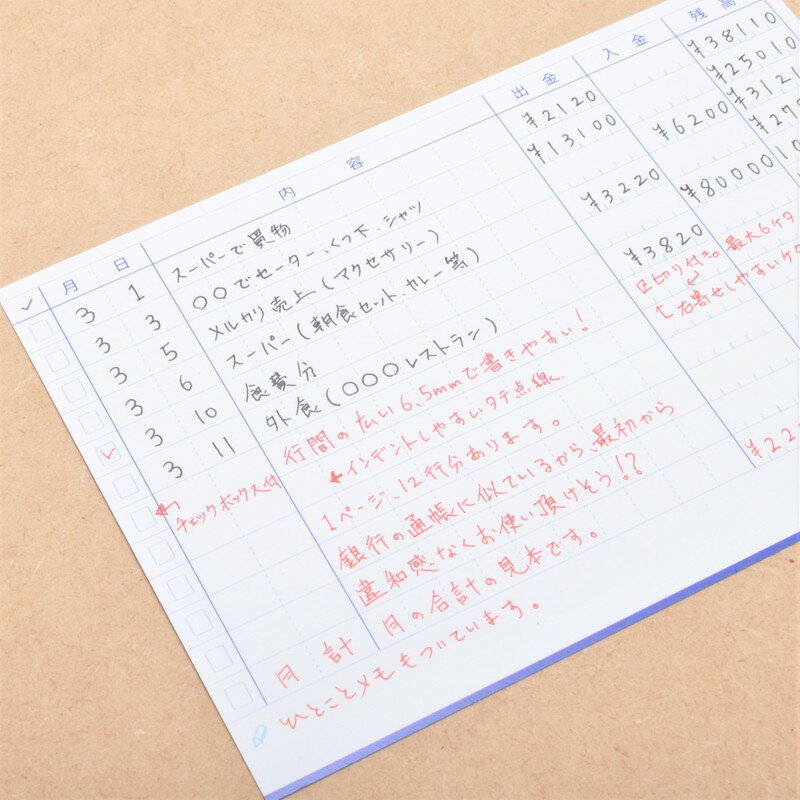 ✓ 月 日 内容 出金 入金 残高
3 1 スーパーで買物 ¥2120 ¥38110
3 3 〇〇でセーター、くつ下、シャツ ¥13100 ¥25010
3 5 メルカリ売上(アクセサリー) ¥6200 ¥3121
3 6 スーパー(朝食セット、カレー等) ¥3220 ¥27
3 10 食費分 ¥80000 10
3 11 外食(〇〇〇レストラン) ¥3820
行間の広い6.5mmで書きやすい!
区切り付き。最大6ケタ
←インデントしやすいタテ点線
右寄せしやすいケタ
チェックボックス付
1ページ、12行分あります。
銀行の通帳に似ているから、最初から
違和感なくお使い頂けそう!?
月計 月の合計の見本です。 ¥22
ひとことメモもついています。